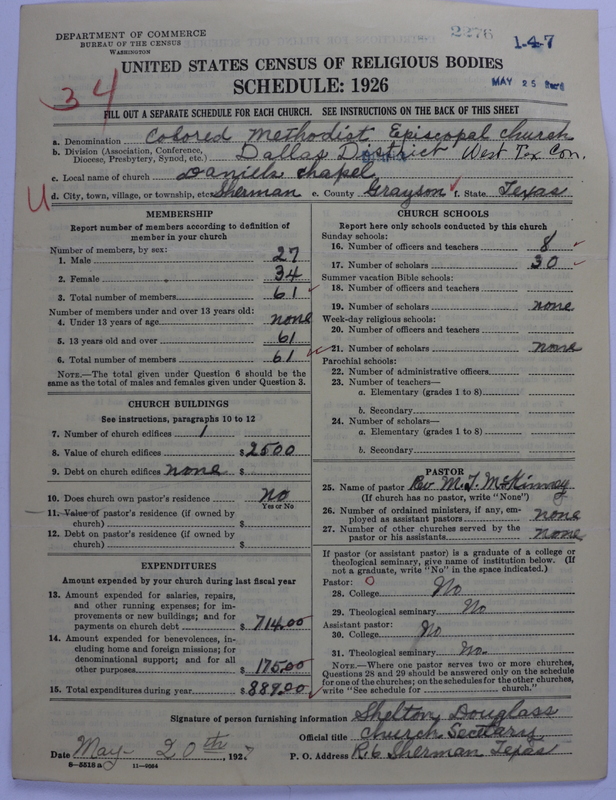 DEPARTMENT OF COMMERCE
BUREAU OF THE CENSUS
WASHINGTON
2276
1-4-7
MAY 25
UNITED STATES CENSUS OF RELIGIOUS BODIES
SCHEDULE: 1926
34
FILL OUT A SEPARATE SCHEDULE FOR EACH CHURCH. SEE INSTRUCTIONS ON THE BACK OF THIS SHEET
a. Denomination Colored Methodist Episcopal Church
b. Division (Association, Conference, Diocese, Presbytery, Synod, etc.) Dallas District West Tex Con.
c. Local name of church Daniels Chapel
U
d. City, town, village, or township, etc. Sherman e. County Grayson f. State Texas
MEMBERSHIP
Report number of members according to definition of
member in your church
Number of members, by sex:
1. Male 27
2. Female 34
3. Total number of members 61
Number of members under and over 13 years old:
4. Under 13 years of age none
5. 13 years old and over 61
6. Total number of members 61
NOTE.—The total given under Question 6 should be
same as the total of males and females given under Question 3.
CHURCH BUILDINGS
See instructions, paragraphs 10 to 12
7. Number of church edifices 1
8. Value of church edifices $2500
9. Debt on church edifices none $
10. Does church own pastor's residence no
Yes or No
11. Value of pastor's residence (if owned by
church) $
12. Debt on pastor's residence (if owned by
church) $
EXPENDITURES
Amount expended by your church during last fiscal year
13. Amount expended for salaries, repairs,
and other running expenses; for im-
provements or new buildings; and for
payments on church debt $714.00
14. Amount expended for benevolences, in-
cluding home and foreign missions; for
denominational support; and for all
other purposes 175.00
15. Total expenditures during year $889.00
CHURCH SCHOOLS
Report here only schools conducted by this church
Sunday schools:
16. Number of officers and teachers 8
17. Number of scholars 30
Summer vacation Bible schools:
18. Number of officers and teachers
19. Number of scholars none
Week-day religious schools:
20. Number of officers and teachers
21. Number of scholars none
Parochial schools:
22. Number of administrative officers
23. Number of teachers—
a. Elementary (grades 1 to 8)
b. Secondary
24. Number of scholars—
a. Elementary (grades 1 to 8)
b. Secondary
PASTOR
25. Name of pastor Rev. M. J. McKinney
(If church has no pastor, write "None")
26. Number of ordained ministers, if any, em-
ployed as assistant pastors none
27. Number of other churches served by the
pastor or his assistants none
If pastor (or assistant pastor) is a graduate of a college or
theological seminary, give name of institution below. (If
not a graduate, write "No" in the space indicated.)
Pastor: O
28. College No
29. Theological seminary No
Assistant pastor:
30. College No
31. Theological seminary No.
NOTE.—Where one pastor serves two or more churches,
Questions 28 and 29 should be answered only on the schedule
for one of the churches; on the schedules for the other churches,
write "See schedule for church."
Signature of person furnishing information Shelton Douglass
Official title Church Secetary
Date May 20th, 1927 P. O. Address R.6 Sherman Texas
8—5518 a 11—9564